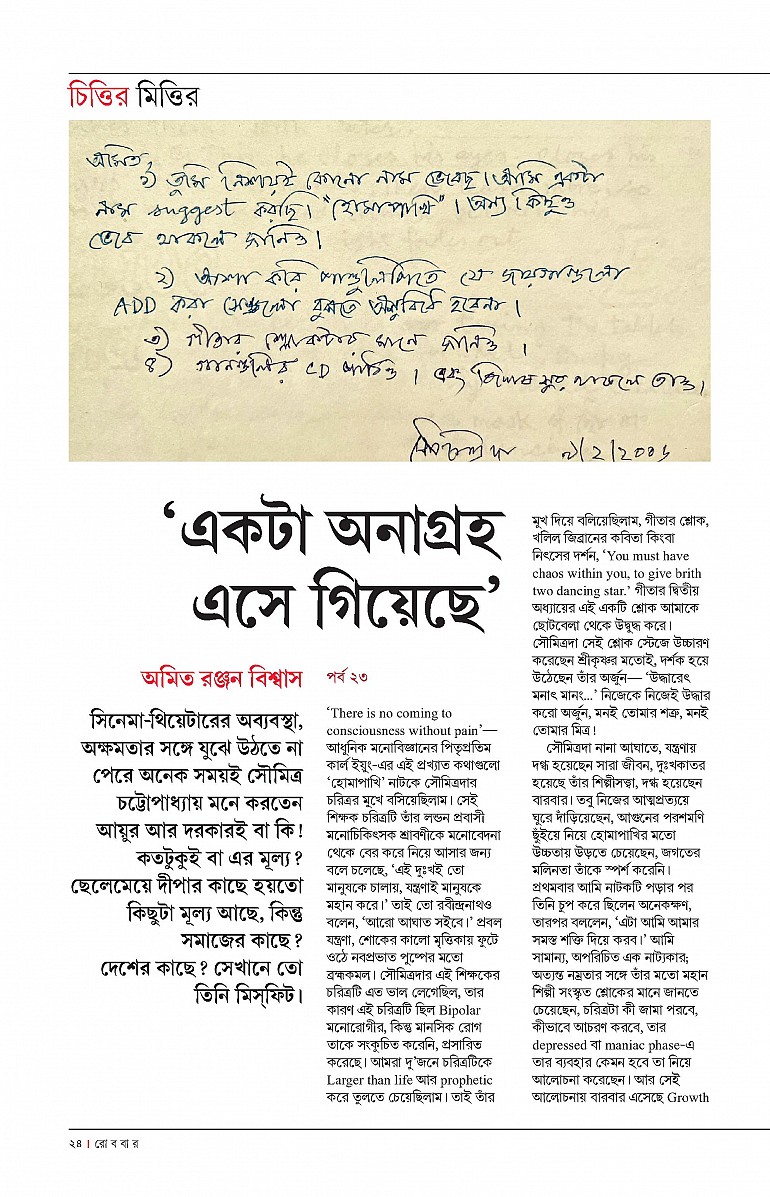 চিত্তির মিত্তির
অমিত,
১) তুমি নিশ্চয়ই কোনো নাম ভেবেছ। আমি একটা
নাম suggest করছি। "হোমাপাখি"। অন্য কিছুও
ভেবে থাকলে জানিও।
২) আশা করি পাণ্ডুলিপিতে যে জায়গাগুলো
ADD করা সেগুলো বুঝতে অসুবিধে হবেনা।
৩) গীতার শ্লোকটার মানে জানিও।
৪) গানগুলির CD পাঠিও। এবং সুর থাকলে তাও।
৯/২/২০০৬
‘একটা অনাগ্রহ
এসে গিয়েছে’
অমিত রঞ্জন বিশ্বাস
সিনেমা-থিয়েটারের অব্যবস্থা,
অক্ষমতার সঙ্গে যুঝে উঠতে না
পেরে অনেক সময়ই সৌমিত্র
চট্টোপাধ্যায় মনে করতেন
আয়ুর আর দরকারই বা কি!
কতটুকুই বা এর মূল্য?
ছেলেমেয়ে দীপার কাছে হয়তো
কিছুটা মূল্য আছে, কিন্তু
সমাজের কাছে?
দেশের কাছে? সেখানে তো
তিনি মিস্‌ফিট।
পর্ব ২৩
‘There is no coming to
consciousness without pain’—
আধুনিক মনোবিজ্ঞানের পিতৃপ্রতিম
কার্ল ইয়ুং-এর এই প্রখ্যাত কথাগুলো
‘হোমাপাখি’ নাটকে সৌমিত্রদার
চরিত্রর মুখে বসিয়েছিলাম। সেই
শিক্ষক চরিত্রটি তাঁর লন্ডন প্রবাসী
মনোচিকিৎসক শ্রাবণীকে মনোবেদনা
থেকে বের করে নিয়ে আসার জন্য
বলে চলেছে, ‘এই দুঃখই তো
মানুষকে চালায়, যন্ত্রণাই মানুষকে
মহান করে।’ তাই তো রবীন্দ্রনাথও
বলেন, ‘আরো আঘাত সইবে।’ প্রবল
যন্ত্রণা, শোকের কালো মৃত্তিকায় ফুটে
ওঠে নবপ্রভাত পুষ্পের মতো
ব্রহ্মকমল। সৌমিত্রদার এই শিক্ষকের
চরিত্রটি এত ভাল লেগেছিল, তার
কারণ এই চরিত্রটি ছিল Bipolar
মনোরোগীর, কিন্তু মানসিক রোগ
তাকে সংকুচিত করেনি, প্রসারিত
করেছে। আমরা দু’জনে চরিত্রটিকে
Larger than life আর prophetic
করে তুলতে চেয়েছিলাম। তাই তাঁর
মুখ দিয়ে বলিয়েছিলাম, গীতার শ্লোক,
খলিল জিব্রানের কবিতা কিংবা
নিৎসের দর্শন, ‘You must have
chaos within you, to give brith
two dancing star.’ গীতার দ্বিতীয়
অধ্যায়ের এই একটি শ্লোক আমাকে
ছোটবেলা থেকে উদ্বুদ্ধ করে।
সৌমিত্রদা সেই শ্লোক স্টেজে উচ্চারণ
করেছেন শ্রীকৃষ্ণর মতোই, দর্শক হয়ে
উঠেছেন তাঁর অর্জুন— ‘উদ্ধারেৎ
মনাৎ মানং...’ নিজেকে নিজেই উদ্ধার
করো অর্জুন, মনই তোমার শত্রু, মনই
তোমার মিত্র!
সৌমিত্রদা নানা আঘাতে, যন্ত্রণায়
দগ্ধ হয়েছেন সারা জীবন, দুঃখকাতর
হয়েছে তাঁর শিল্পীসত্ত্বা, দগ্ধ হয়েছেন
বারবার। তবু নিজের আত্মপ্রত্যয়ে
ঘুরে দাঁড়িয়েছেন, আগুনের পরশমণি
ছুঁইয়ে নিয়ে হোমাপাখির মতো
উচ্চতায় উড়তে চেয়েছেন, জগতের
মলিনতা তাঁকে স্পর্শ করেনি।
প্রথমবার আমি নাটকটি পড়ার পর
তিনি চুপ করে ছিলেন অনেকক্ষণ,
তারপর বললেন, ‘এটা আমি আমার
সমস্ত শক্তি দিয়ে করব।’ আমি
সামান্য, অপরিচিত এক নাট্যকার;
অত্যন্ত নম্রতার সঙ্গে তাঁর মতো মহান
শিল্পী সংস্কৃত শ্লোকের মানে জানতে
চেয়েছেন, চরিত্রটা কী জামা পরবে,
কীভাবে আচরণ করবে, তার
depressed বা maniac phase-এ
তার ব্যবহার কেমন হবে তা নিয়ে
আলোচনা করেছেন। আর সেই
আলোচনায় বারবার এসেছে Growth
২৪ | রো ব বা র